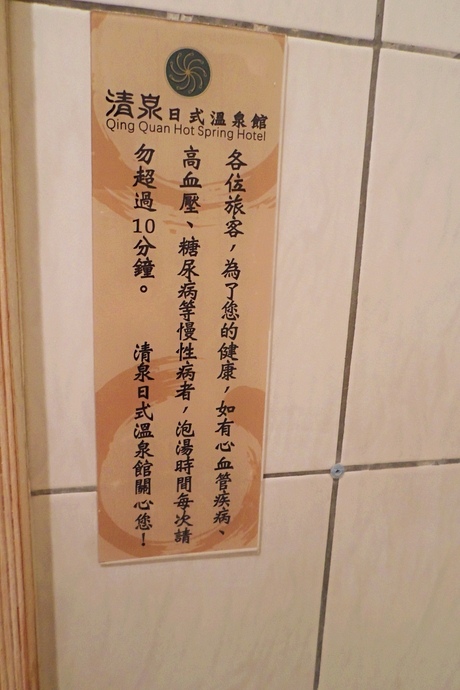 清泉日式溫泉館
Qing Quan Hot Spring Hotel
各位旅客，為了您的健康，如有心血管疾病、
高血壓、糖尿病等慢性病者，泡湯時間每次請
勿超過10分鐘。 清泉日式溫泉館關心您！